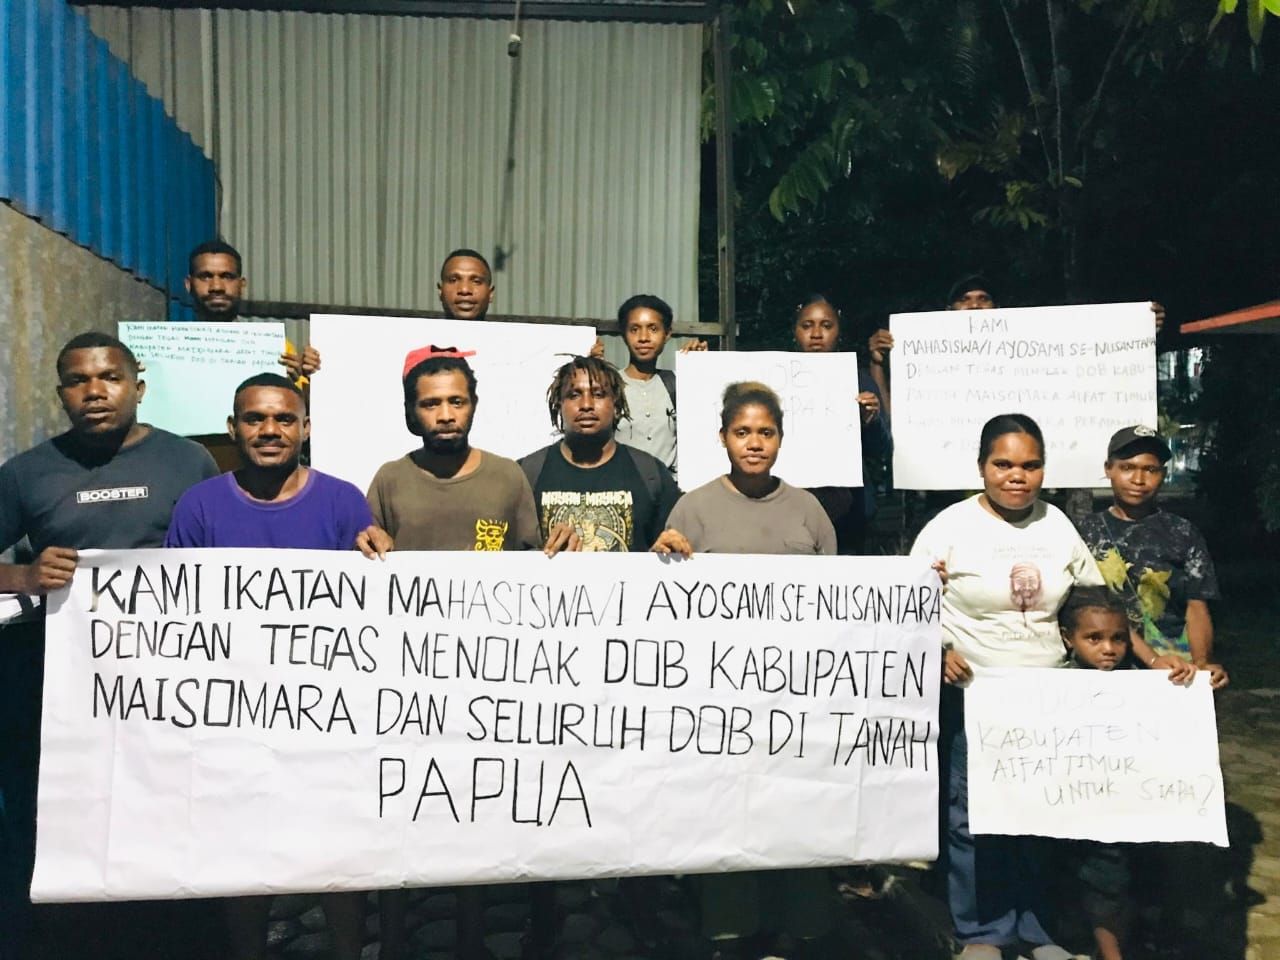 KAMI IKATAN MAHASISWA/I AYOSAMI SE-NUSANTARA
DENGAN TEGAS MENOLAK DOB KABUPATEN
MAISOMARA DAN SELURUH DOB DI TANAH
PAPUA
KAMI IKATAN MAHASISWA/I AYOSAMI SE-NUSANTARA
DENGAN TEGAS MENOLAK DOB
KABUPATEN MAISOMARA AIFAT TIMUR
DAN SELURUH DOB DI TANAH PAPUA
KAMI
MAHASISWA/I AYOSAMI SE-NUSANTARA
DENGAN TEGAS MENOLAK DOB KABU-
PATEN MAISOMARA AIFAT TIMUR
KABUPATEN
AIFAT TIMUR
UNTUK SIAPA?
BOOSTER
MAYAN MAYHCA